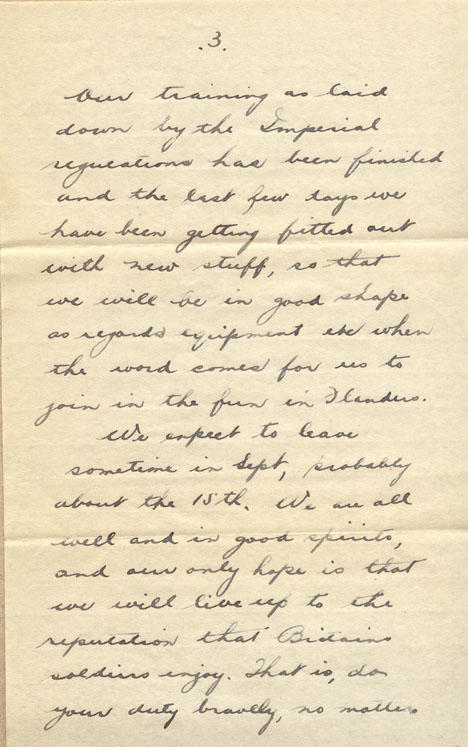 .3.
Our training as laid
down by the Imperial
regulations has been finished
and the last few days we
have been getting fitted out
with new stuff, so that
we will be in good shape
as regards equipment etc when
the word comes for us to
join in the fun in Flanders.
We expect to leave
sometime in Sept, probably
about the 15th. We are all
well and in good spirits,
and our only hope is that
we will live up to the
reputation that Britains
soldiers enjoy. That is, do
your duty bravely, no matter